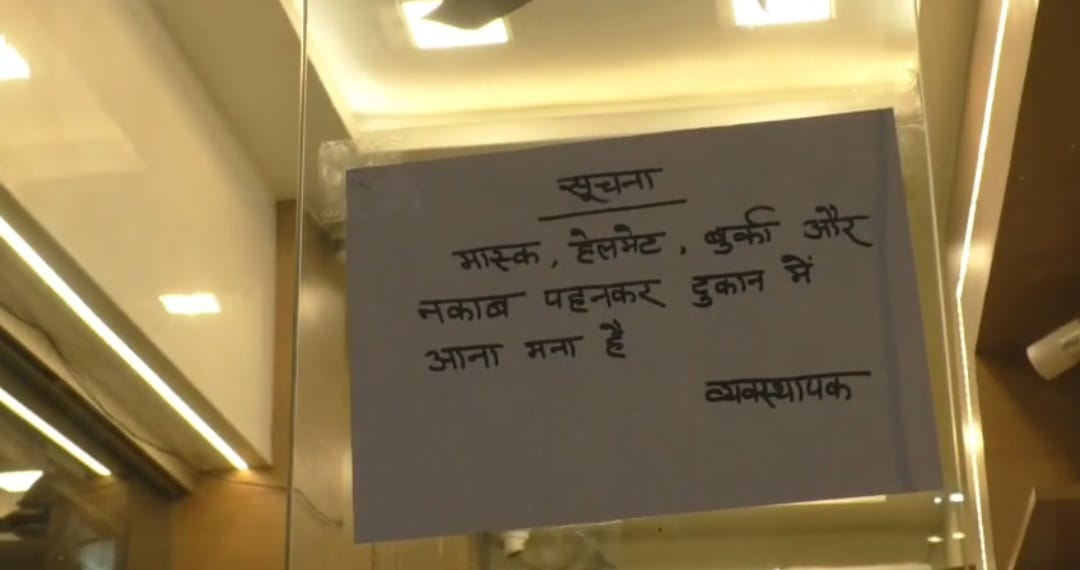 सूचना
मास्क, हेलमेट, बुर्का और
नकाब पहनकर दुकान में
आना मना है
व्यवस्थापक